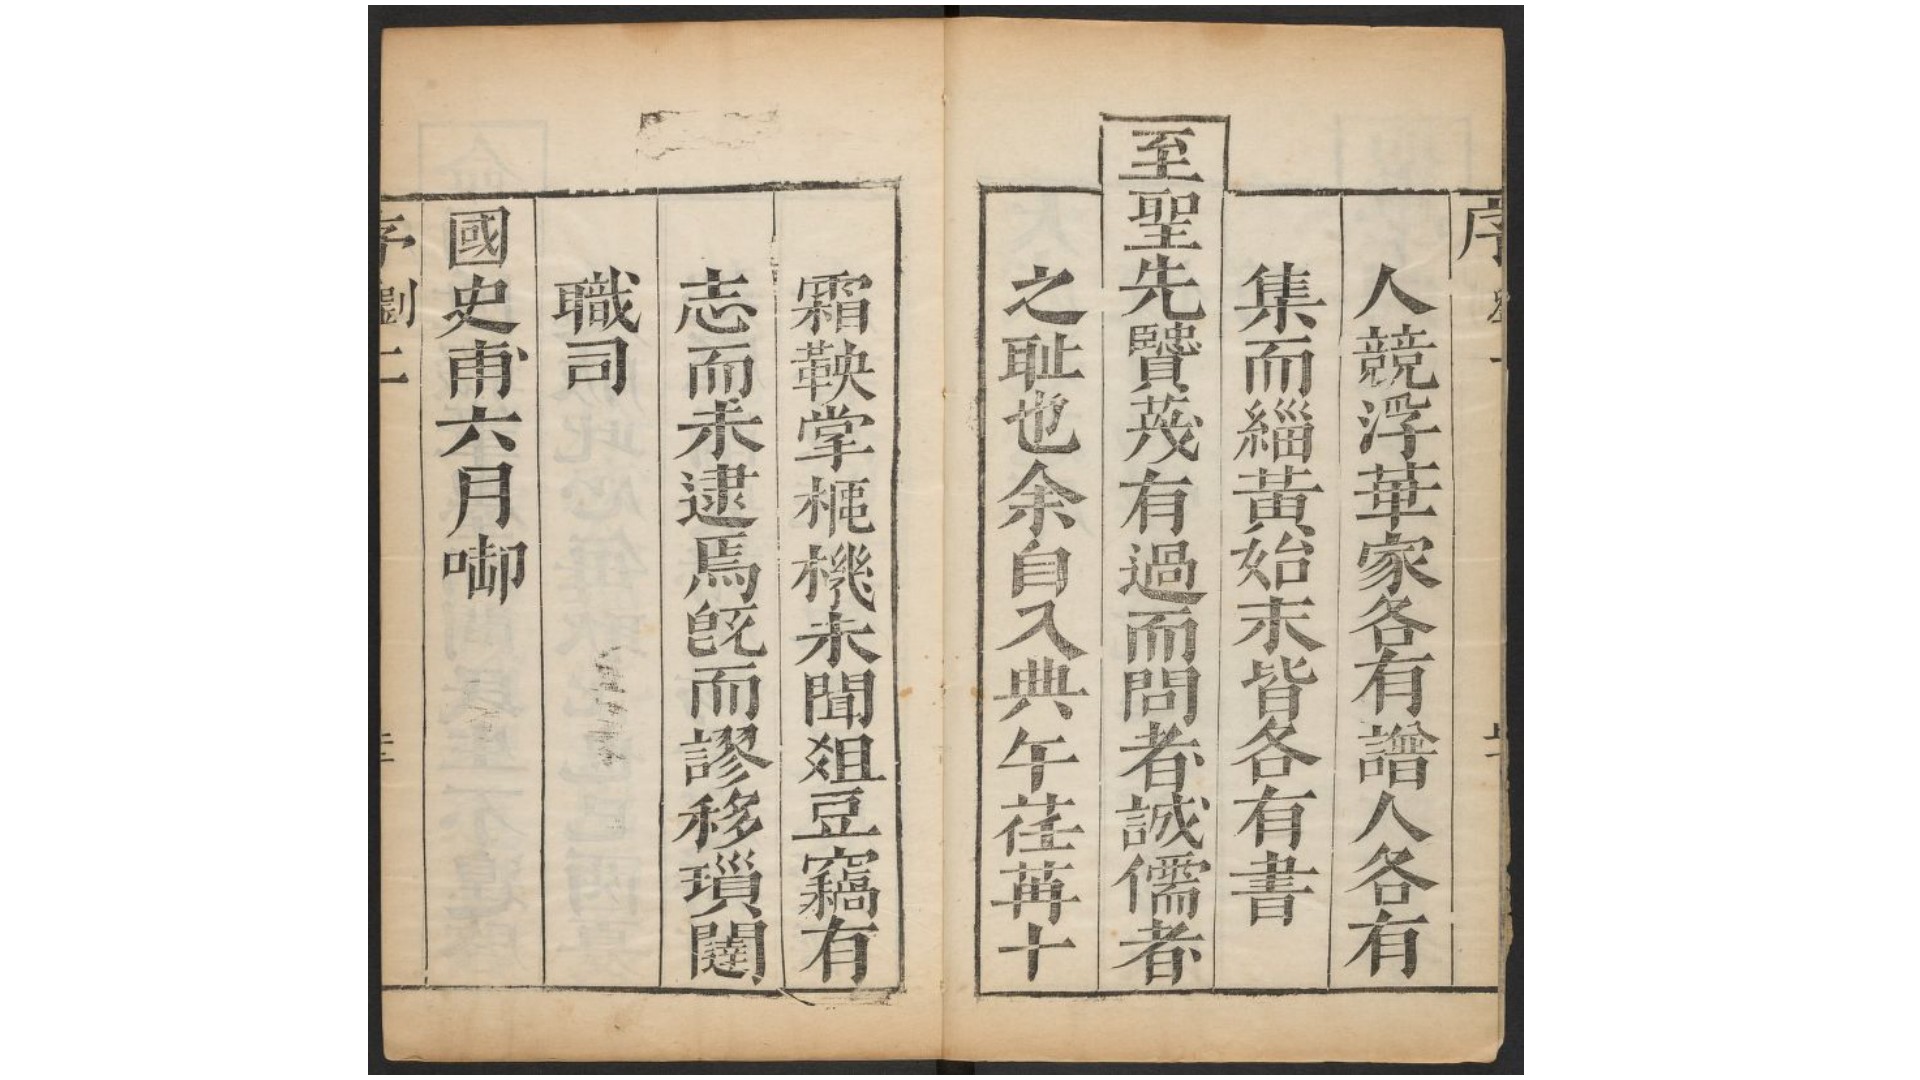 序
人競浮華家各有譜人各有
集而緇黃始末皆各有書
至聖先賢茂有過而問者誠儒者
之耻也余自入典午荏苒十
霜鞅掌梔機未聞爼豆竊有
志而未逮焉旣而謬移瑣闥
職司
國史甫六月啣
序劉二